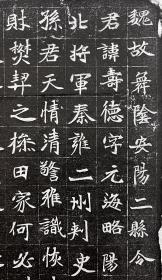 魏故舞陰安陽二縣令
君諱壽德字元海略陽
北将軍秦雍二州刾史
孫君天情清警雅識恢
財樊契之操田家何必